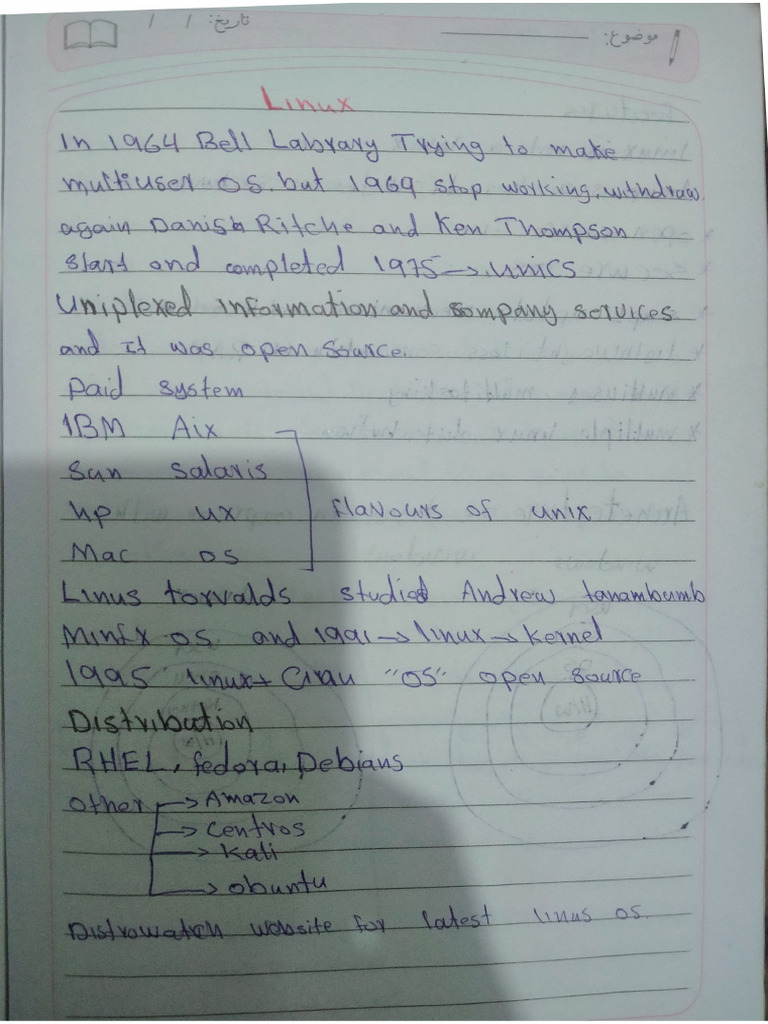 تاريخ: / /
موضوع:
Linux
In 1964 Bell Labrary Trying to make
multiuser OS. but 1969 stop working, withdraw
again Danish Ritche and Ken Thompson
start and completed 1975 → UNICS
Uniplexed Information and company services
and it was open source.
Paid system
IBM Aix
Sun Salaris
hp ux
flavours of unix
Mac OS
Linus torvalds studied Andrew tanambumb
Minix OS and 1991 → linux → Kernel
1995 linux + Gnu "OS" open source
Distribution
RHEL, fedora, Debians
Other → Amazon
→ Centros
→ Kali
→ Obuntu
Distrowatch website for latest linus os.